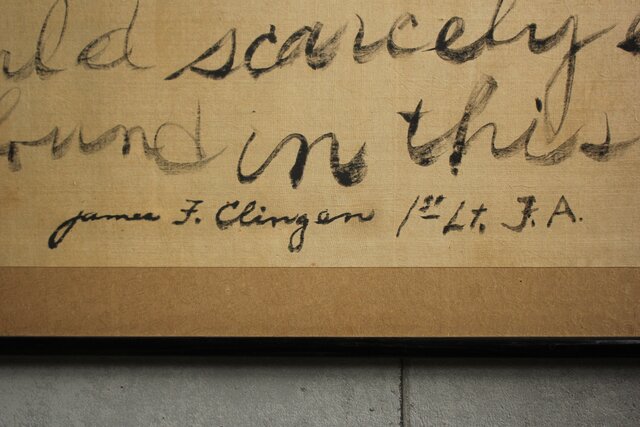 uld scarcely
ound in this
James F. Clingen 1st Lt. F.A.